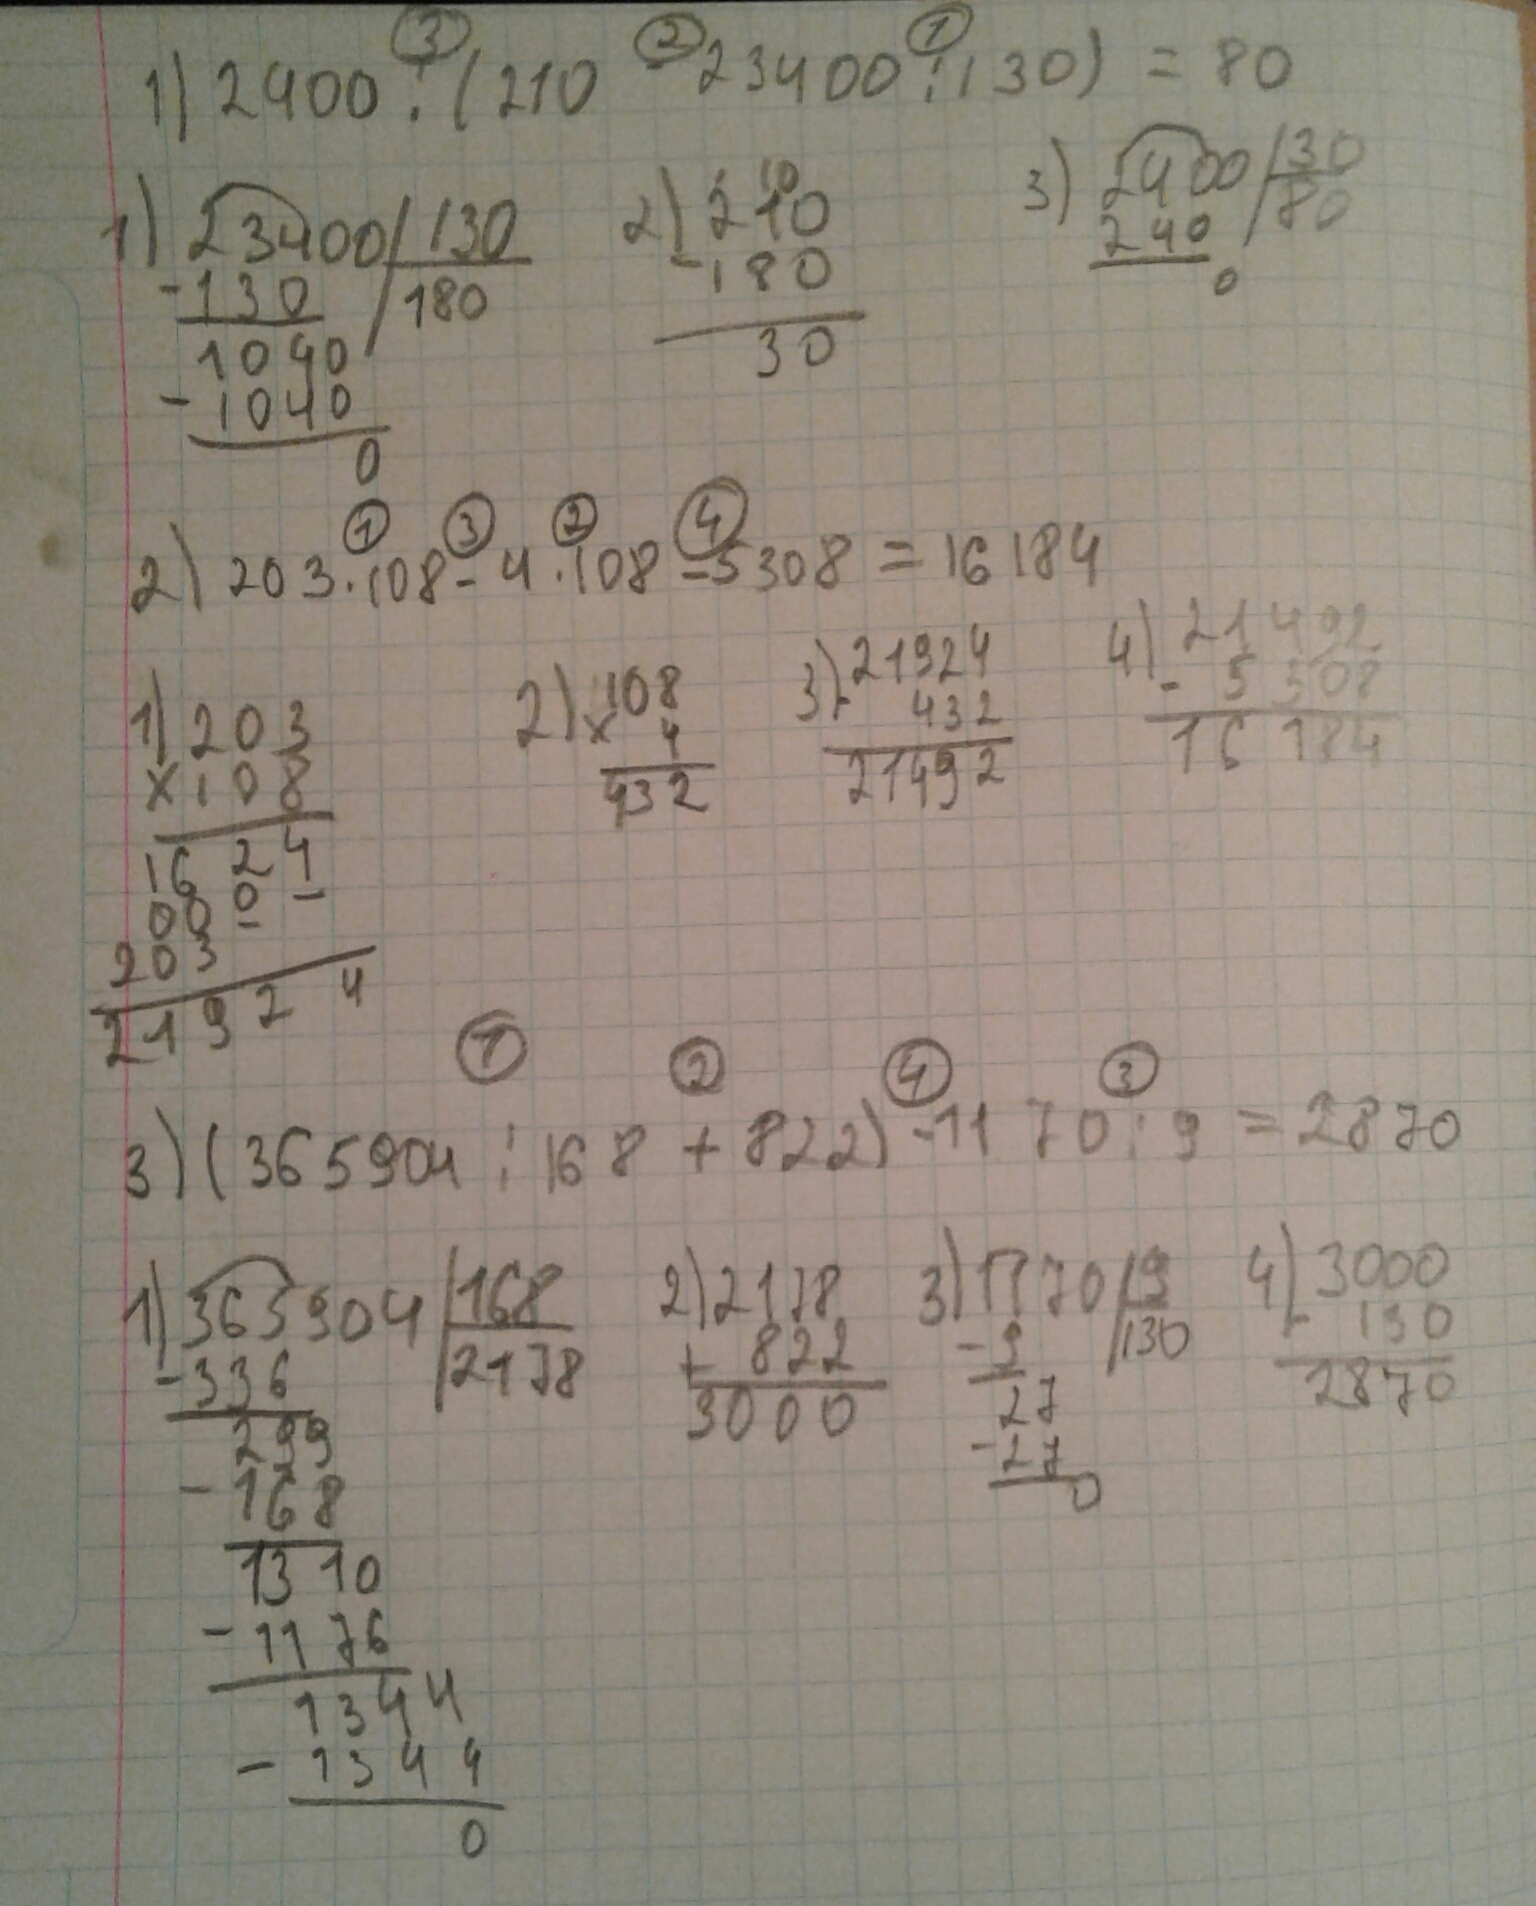 ③ ② ①
1) 2400 : (210 - 23400 : 130) = 80
1) 23400 130
- 130 180
1040
- 1040
0
2) 10
210
- 180
30
3) 2400 30
240 80
0
① ③ ② ④
2) 203 · 108 - 4 · 108 - 5308 = 16184
1) 203
x 108
1624
000 -
203 -
21924
2) 108
x 4
432
3) 21924
- 432
21492
4) 21492
- 5308
16184
① ② ④ ③
3) (365904 : 168 + 822) - 1170 : 9 = 2870
1) 365904 168
- 336 2178
299
- 168
1310
- 1176
1344
- 1344
0
2) 2178
+ 822
3000
3) 1170 9
- 9 130
27
- 27
0
4) 3000
- 130
2870